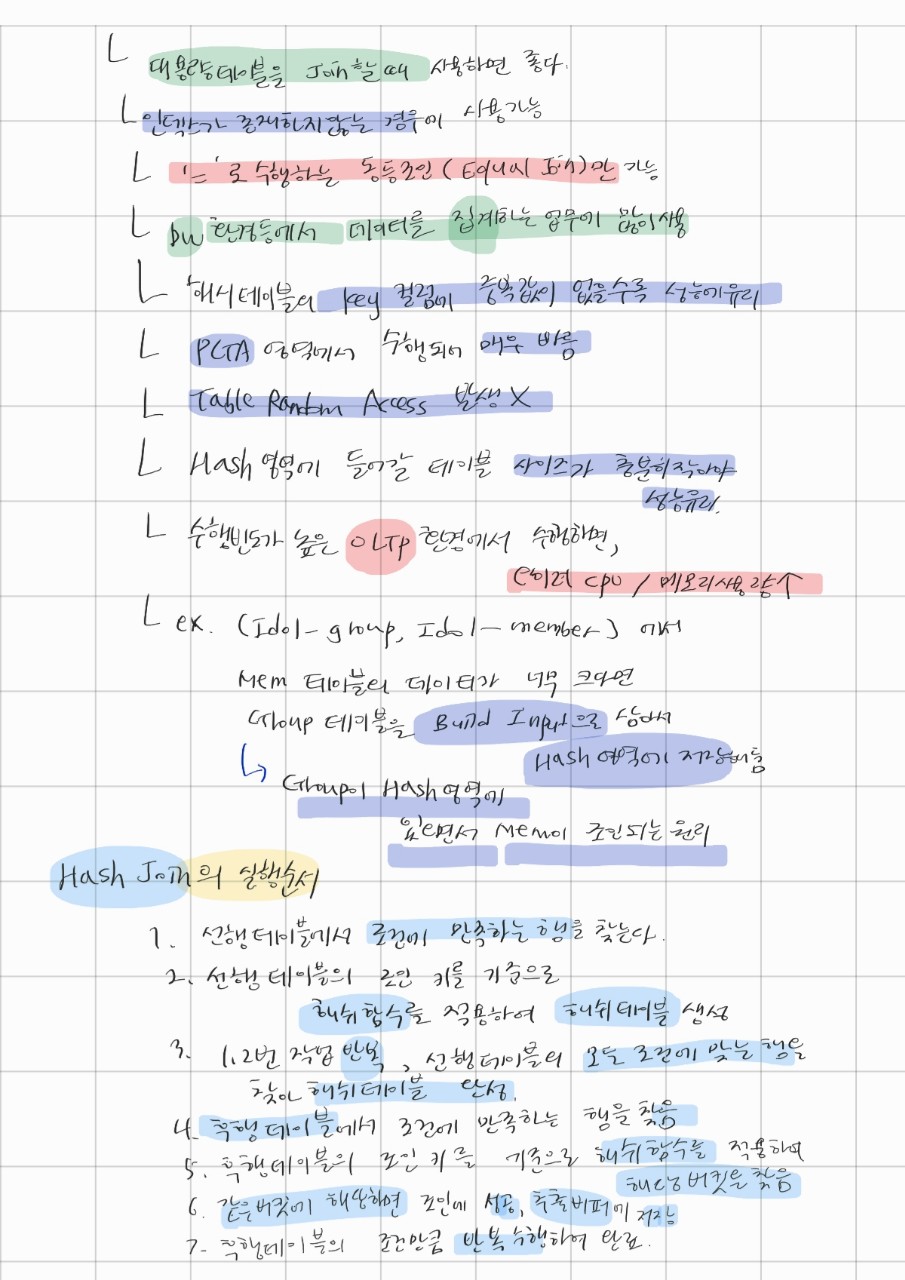 ㄴ 대용량테이블을 Join할때 사용하면 좋다.
ㄴ 인덱스가 존재하지않는 경우에 사용가능
ㄴ '='로 수행하는 동등조인(Equal Join)만 가능
ㄴ DW 환경등에서 데이터를 집계하는 업무에 많이사용
ㄴ 해시테이블의 key 컬럼에 중복값이 없을수록 성능에유리
ㄴ PGA 영역에서 수행되어 매우 빠름
ㄴ Table Random Access 발생 X
ㄴ Hash영역에 들어갈 테이블 사이즈가 충분히작아야
성능유리.
ㄴ 수행빈도가 높은 OLTP 환경에서 수행하면,
오히려 CPU / 메모리사용량↑
ㄴ ex. (Idol-group, Idol-member) 에서
Mem 테이블의 데이터가 너무 크다면
Group 테이블을 Build Input으로 삼아서
Hash 영역에 저장해둠
↳ Group이 Hash영역에
있으면서 Mem이 조인되는 원리
Hash Join의 실행순서
1. 선행테이블에서 조건에 만족하는 행을 찾는다.
2. 선행 테이블의 조인 키를 기준으로
해쉬함수를 적용하여 해쉬테이블 생성
3. 1,2번 작업 반복, 선행테이블의 모든 조건에 맞는 행을
찾아 해쉬테이블 완성.
4. 후행테이블에서 조건에 만족하는 행을 찾음
5. 후행테이블의 조인 키를 기준으로 해쉬함수를 적용하여
해당버킷을 찾음
6. 같은버킷에 해당하면 조인에 성공, 추출버퍼에 저장
7. 후행테이블의 조건만큼 반복수행하여 완료.